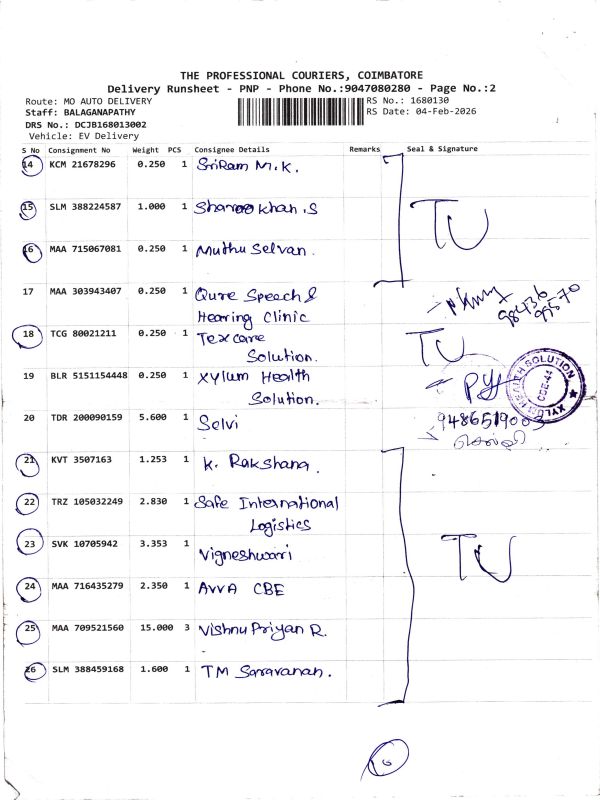 THE PROFESSIONAL COURIERS, COIMBATORE
Delivery Runsheet - PNP - Phone No.:9047080280 - Page No.:2
Route: MO AUTO DELIVERY
RS No.: 1680130
Staff: BALAGANAPATHY
RS Date: 04-Feb-2026
DRS No.: DCJB168013002
Vehicle: EV Delivery
S No Consignment No Weight PCS Consignee Details Remarks Seal & Signature
14 KCM 21678296 0.250 1 SriRam M.K.
15 SLM 388224587 1.000 1 Sharookhan.S
TU
16 MAA 715067081 0.250 1 Muthu Selvan.
17 MAA 303943407 0.250 1 Qure Speech &
Hearing Clinic
98436
99570
18 TCG 80021211 0.250 1 Texcare
Solution.
TU
19 BLR 5151154448 0.250 1 Xylum Health
Solution.
XYLUM HEALTH SOLUTION
CBE-44
20 TDR 200090159 5.600 1 Selvi
9486519003
செல்வி
21 KVT 3507163 1.253 1 K. Rakshana.
22 TRZ 105032249 2.830 1 Safe International
Logistics
23 SVK 10705942 3.353 1 Vigneshwari
TU
24 MAA 716435279 2.350 1 AVVA CBE
25 MAA 709521560 15.000 3 Vishnu Priyan R.
26 SLM 388459168 1.600 1 TM Saravanan.